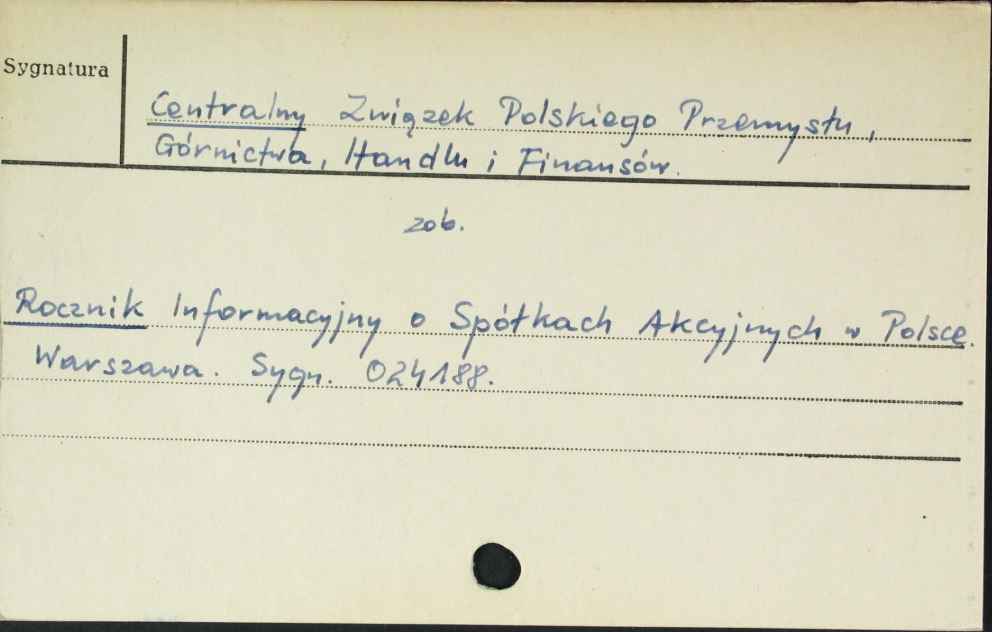 Sygnatura
Centralny Związek Polskiego Przemysłu,
Górnictwa, Handlu i Finansów.
zob.
Rocznik Informacyjny o Spółkach Akcyjnych w Polsce.
Warszawa. Sygn. 024188.